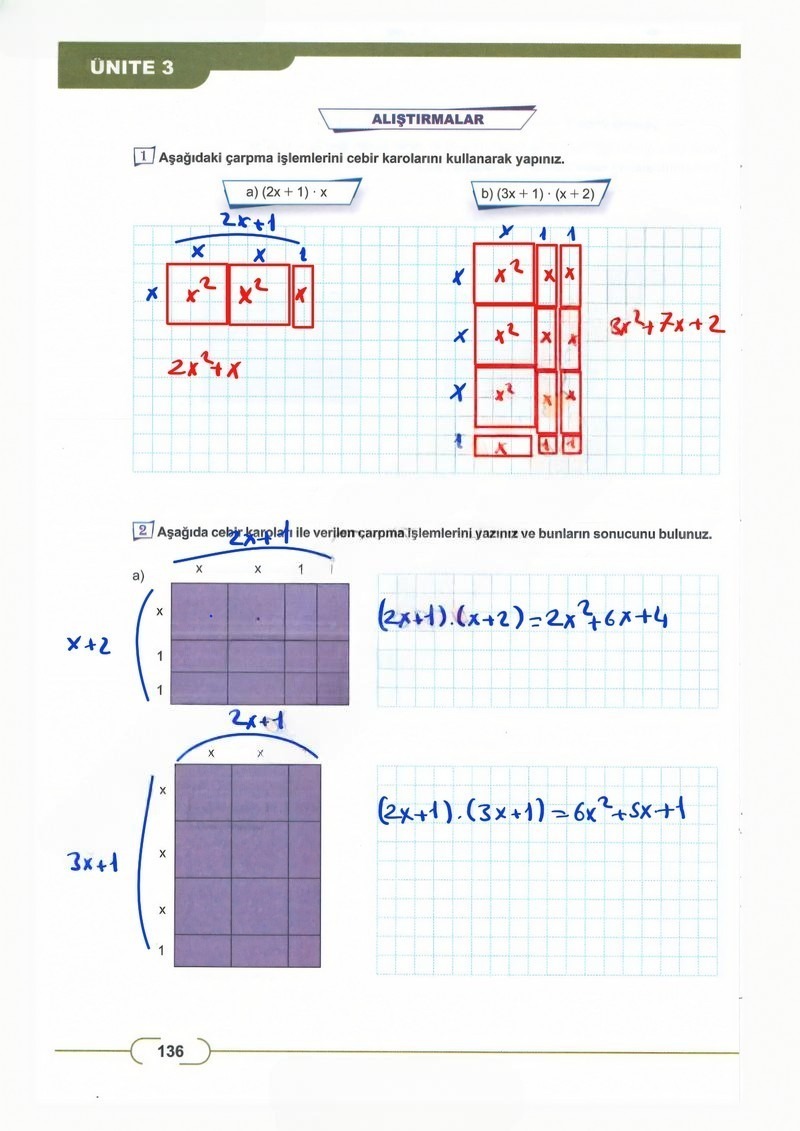 ÜNITE 3
ALIŞTIRMALAR
1 Aşağıdaki çarpma işlemlerini cebir karolarını kullanarak yapınız.
a) (2x + 1) · x
b) (3x + 1) · (x + 2)
2x+1
x x 1
x x² x² x
2x²+x
x 1 1
x x² x x
x x² x x
x x² x x
1 x 1 1
3x²+7x+2
2 Aşağıda cebir karoları ile verilen çarpma işlemlerini yazınız ve bunların sonucunu bulunuz.
2x+1
a)
x x 1 1
x
1
1
x+2
(2x+1).(x+2)=2x²+6x+4
2x+1
x x
x
x
x
1
3x+1
(2x+1).(3x+1)=6x²+5x+1
136